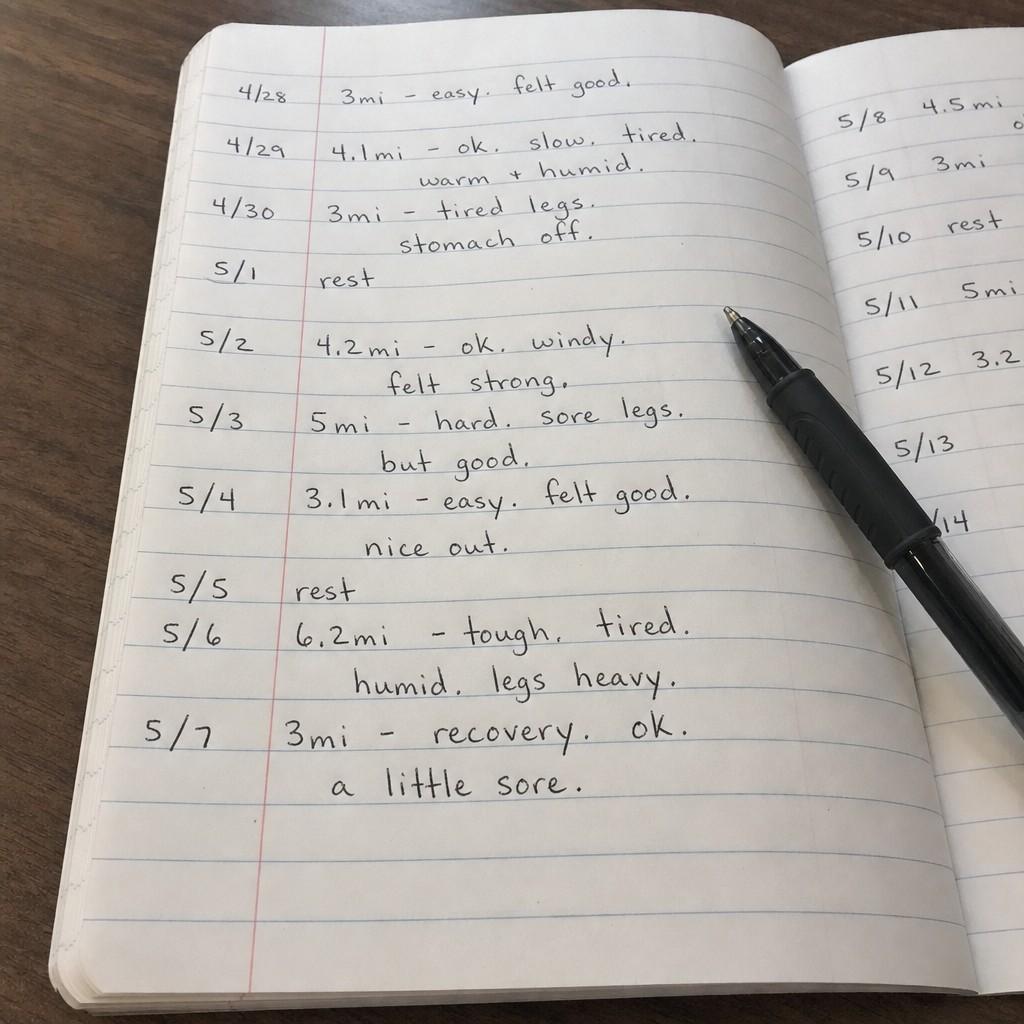 4/28 3mi - easy. felt good.
4/29 4.1mi - ok. slow. tired.
warm + humid.
4/30 3mi - tired legs.
stomach off.
5/1 rest
5/2 4.2mi - ok. windy.
felt strong.
5/3 5mi - hard. sore legs.
but good.
5/4 3.1mi - easy. felt good.
nice out.
5/5 rest
5/6 6.2mi - tough. tired.
humid. legs heavy.
5/7 3mi - recovery. ok.
a little sore.
5/8 4.5mi
5/9 3mi
5/10 rest
5/11 5mi
5/12 3.2
5/13
/14